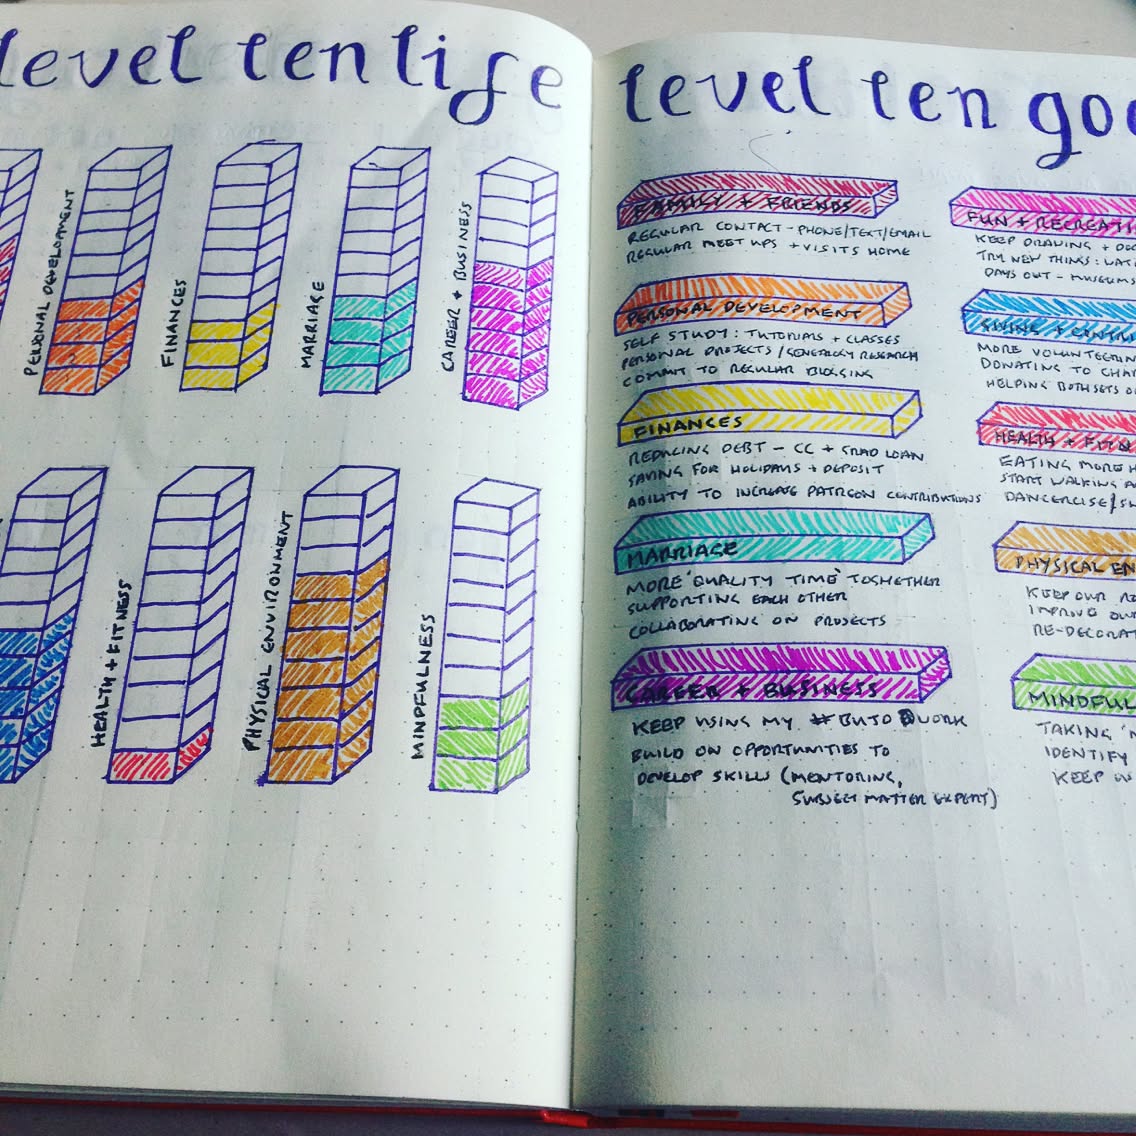 level ten life
PERSONAL DEVELOPMENT
FINANCES
MARRIAGE
CAREER + BUSINESS
HEALTH + FITNESS
PHYSICAL ENVIRONMENT
MINDFULNESS
level ten goa
FAMILY + FRIENDS
REGULAR CONTACT - PHONE/TEXT/EMAIL
REGULAR MEET UPS + VISITS HOME
PERSONAL DEVELOPMENT
SELF STUDY: TUTORIALS + CLASSES
PERSONAL PROJECTS/GENEALOGY RESEARCH
COMMIT TO REGULAR BLOGGING
FINANCES
REDUCING DEBT - CC + GRAD LOAN
SAVING FOR HOLIDAYS + DEPOSIT
ABILITY TO INCREASE PATREON CONTRIBUTIONS
MARRIAGE
MORE 'QUALITY TIME' TOGHETHER
SUPPORTING EACH OTHER
COLLABORATING ON PROJECTS
CAREER + BUSINESS
KEEP USING MY # BUJO @ WORK
BUILD ON OPPORTUNITIES TO
DEVELOP SKILLS (MENTORING,
SUBJECT MATTER EXPERT)
FUN + RECREATI
KEEP DRAWING + DO
TRY NEW THINGS: LAT
DAYS OUT - MUSEUMS
GIVING + CONTRI
MORE VOLUNTEERIN
DONATING TO CHA
HELPING BOTH SETS O
HEALTH + FITN
EATING MORE H
START WALKING A
DANCERCISE/S
PHYSICAL EN
KEEP OUR
IMPROVE OU
RE-DECORAT
MINDFUL
TAKING
IDENTIFY
KEEP